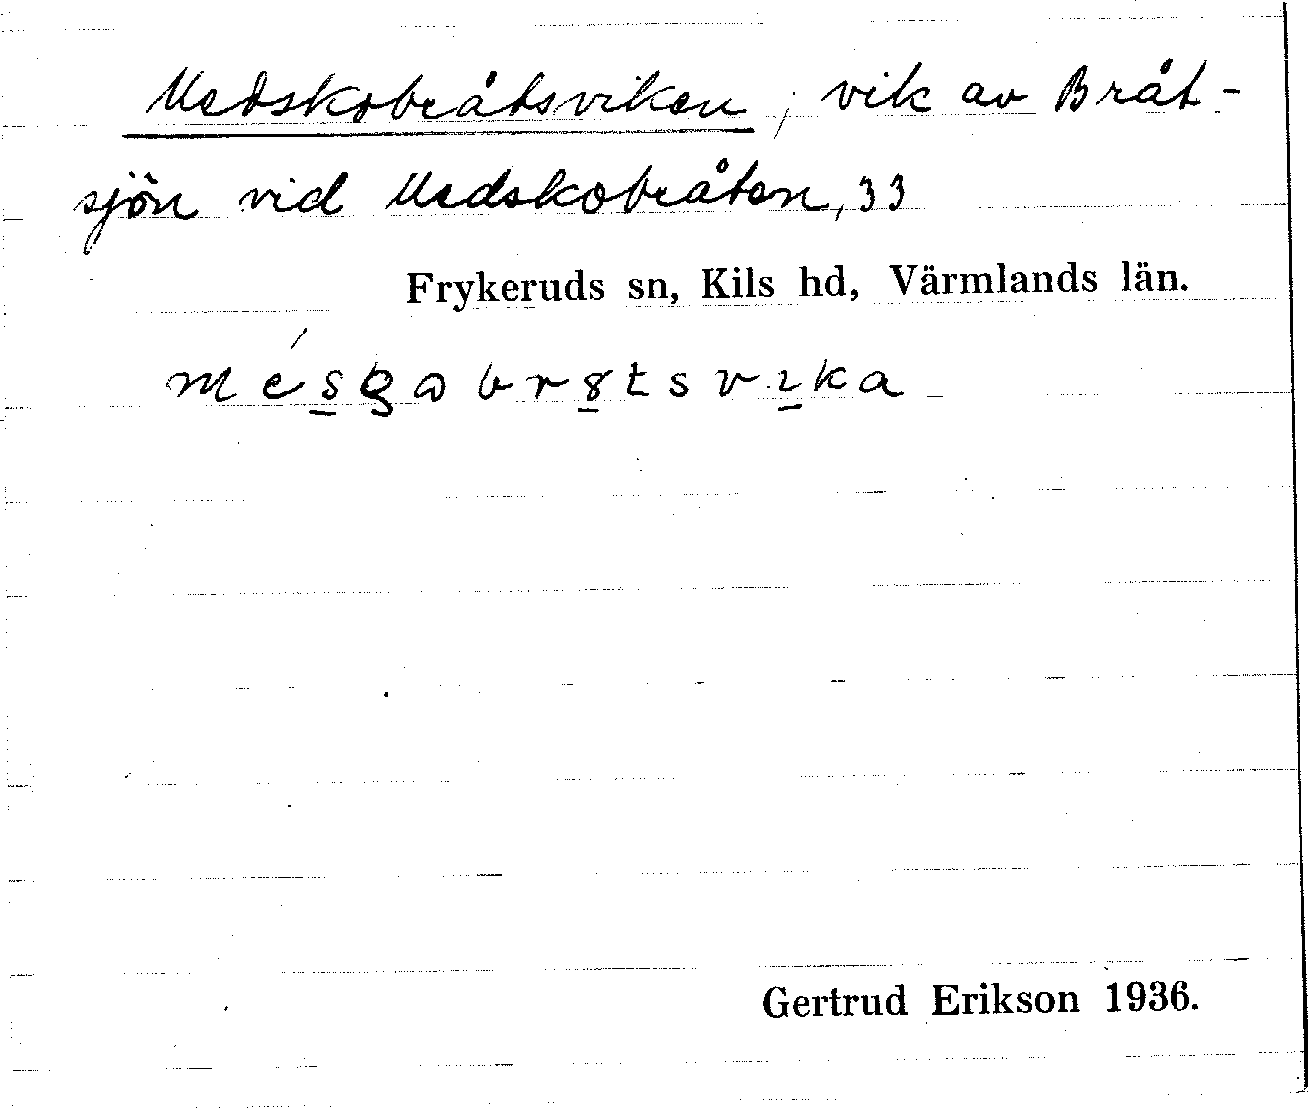 Medskobråtsviken, vik av Bråt-
sjön vid Medskobråten, 33
Frykeruds sn, Kils hd, Värmlands län.
Gertrud Erikson 1936.